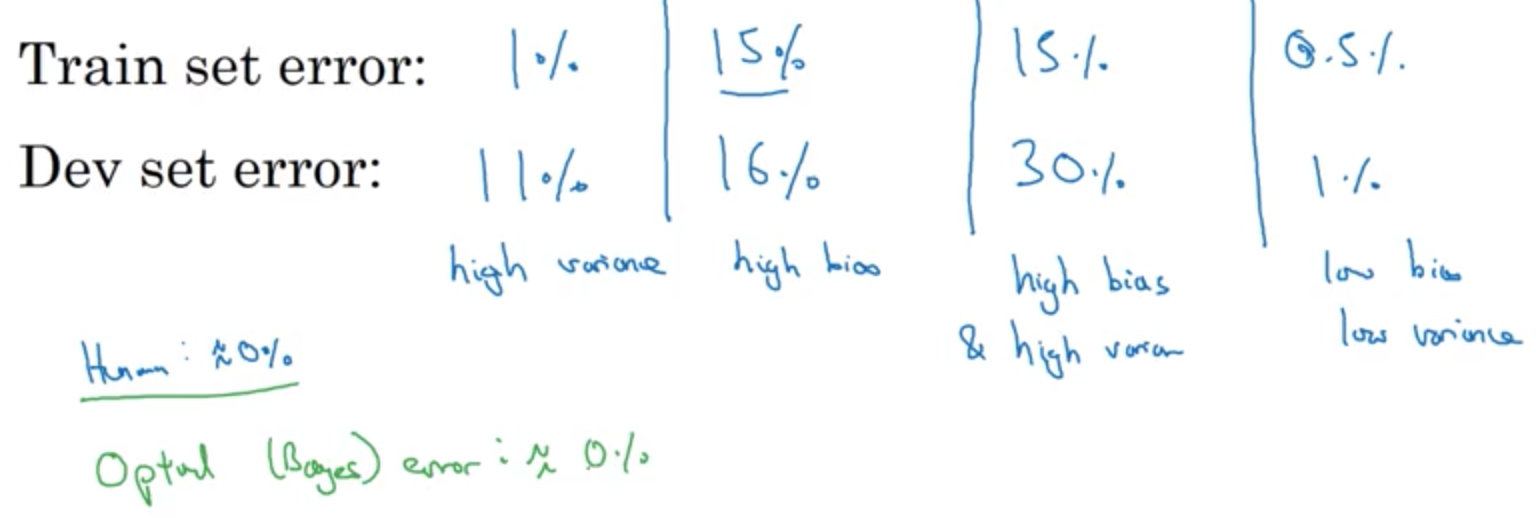 Train set error: 1% 15% 15% 0.5%
Dev set error: 11% 16% 30% 1%
high variance high bias high bias low bias
& high varian low variance
Human: ≈0%
Optimal (Bayes) error: ≈ 0%